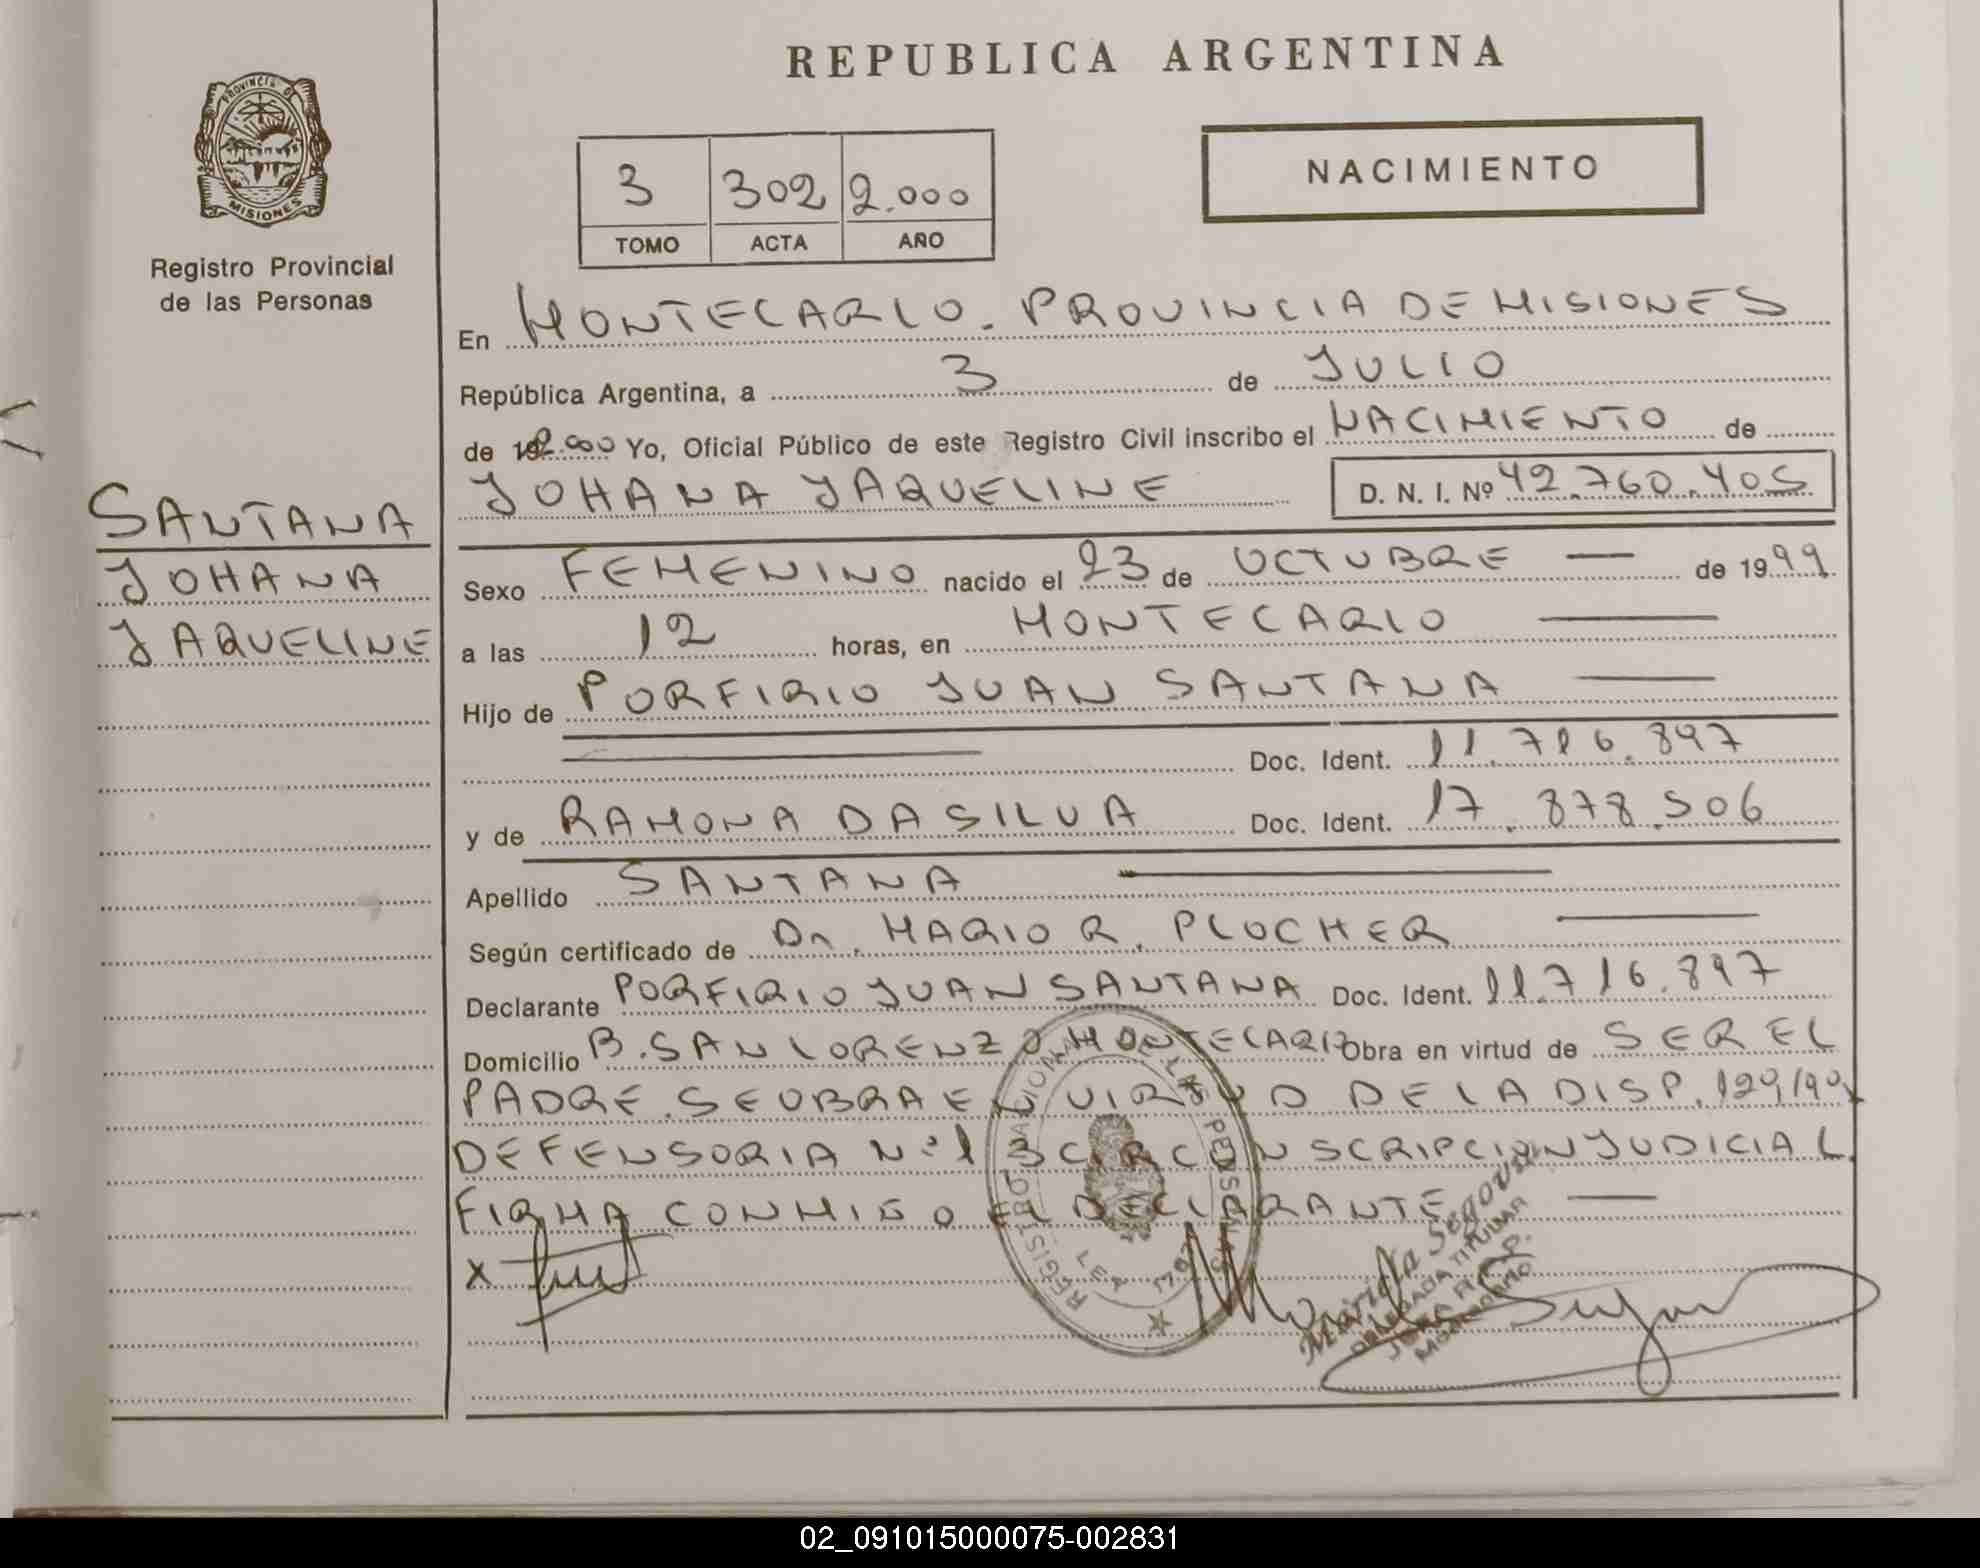 REPUBLICA ARGENTINA
PROVINCIA DE
MISIONES
Registro Provincial
de las Personas
NACIMIENTO
3 302 2.000
TOMO ACTA AÑO
En MONTECARLO. PROVINCIA DE MISIONES
República Argentina, a 3 de JULIO
de 2.000 Yo, Oficial Público de este Registro Civil inscribo el NACIMIENTO de
JOHANA JAQUELINE D. N. I. Nº 42.760.405
SANTANA
JOHANA
JAQUELINE
Sexo FEMENINO nacido el 23 de OCTUBRE de 1999
a las 12 horas, en MONTECARLO
Hijo de PORFIRIO JUAN SANTANA
Doc. Ident. 11.716.897
y de RAMONA DA SILVA Doc. Ident. 17.878.506
Apellido SANTANA
Según certificado de Dr. MARIO R. PLOCHER
Declarante PORFIRIO JUAN SANTANA Doc. Ident. 11.716.897
Domicilio B. SAN LORENZO MONTECARLO Obra en virtud de SER EL
PADRE. SE OBRA EN VIRTUD DE LA DISP. 129/90
DEFENSORIA Nº 1 3 CIRCUNSCRIPCION JUDICIAL.
FIRMA CONMIGO EL DECLARANTE
x
REGISTRO NACIONAL DE LAS PERSONAS
LEY
Mariela Segovia
DELEGADA TITULAR
02_091015000075-002831